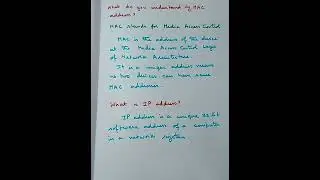 What do you understand by MAC
address?
MAC stands for Media Access Control
MAC is the address of the device
at the Media Access Control Layer
of Network Architecture.
It is a unique address means
no two devices can have same
MAC addresses
What is IP address?
IP address is a unique 32 bit
software address of a computer
in a network system.